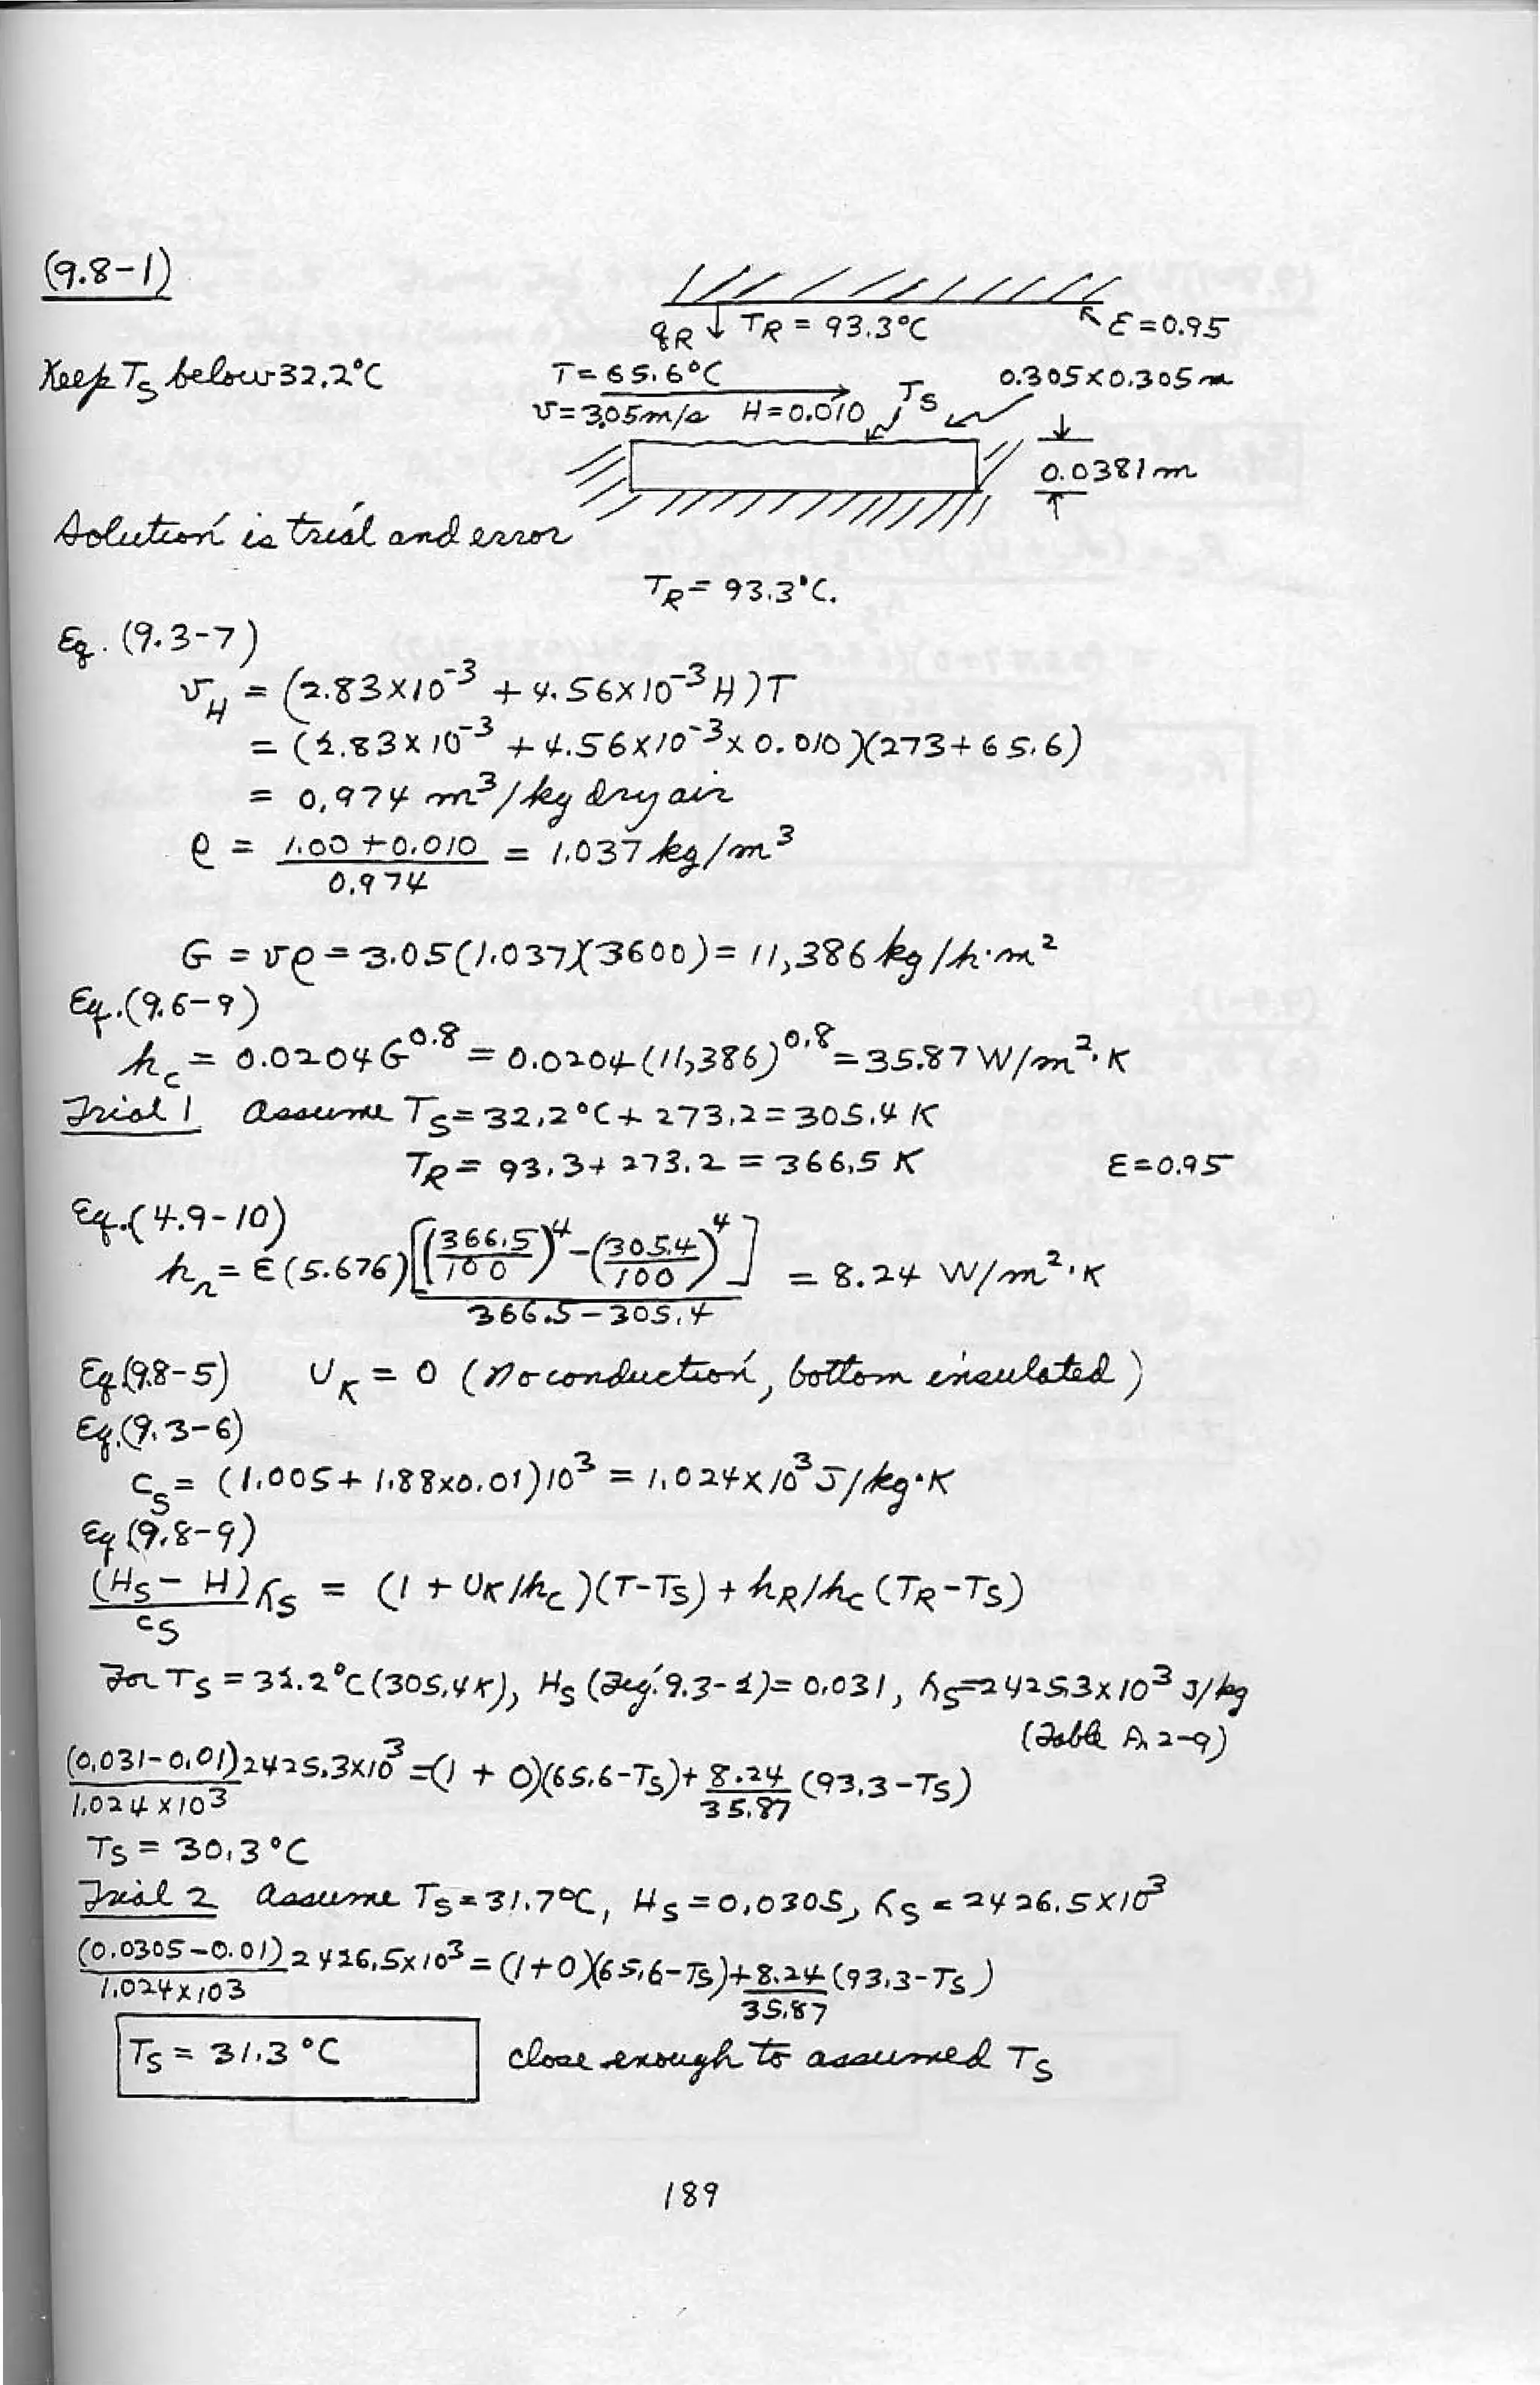 (9.8-1)
q_R ↓ T_R = 93.3°C ε = 0.95
Keep T_S below 32.2°C
T = 65.6°C T_S 0.305 x 0.305 m
v = 3.05 m/s H = 0.010
0.0381 m
Solution is trial and error
T_R = 93.3°C.
Eq. (9.3-7)
v_H = (2.83x10^-3 + 4.56x10^-3 H)T
= (2.83x10^-3 + 4.56x10^-3 x 0.010)(273+65.6)
= 0.974 m^3/kg dry air
ρ = (1.00 + 0.010)/0.974 = 1.037 kg/m^3
G = vρ = 3.05(1.037)(3600) = 11,386 kg/h·m^2
Eq. (9.6-9)
h_c = 0.0204 G^0.8 = 0.0204 (11,386)^0.8 = 35.87 W/m^2·K
Trial 1 Assume T_S = 32.2°C + 273.2 = 305.4 K
T_R = 93.3 + 273.2 = 366.5 K ε = 0.95
Eq. (4.9-10)
h_r = ε(5.676)[(366.5/100)^4 - (305.4/100)^4]/(366.5 - 305.4) = 8.24 W/m^2·K
Eq (9.8-5) U_K = 0 (No conduction, bottom insulated)
Eq. (9.3-6)
c_S = (1.005 + 1.88x0.01)10^3 = 1.024x10^3 J/kg·K
Eq (9.8-9)
(H_S - H)λ_S/c_S = (1 + U_K/h_c)(T-T_S) + h_R/h_c (T_R-T_S)
For T_S = 32.2°C (305.4K), H_S (Fig. 9.3-2) = 0.031, λ_S = 2425.3x10^3 J/kg
(Table A.2-9)
(0.031-0.01)2425.3x10^3/1.024x10^3 = (1 + 0)(65.6-T_S) + 8.24/35.87 (93.3-T_S)
T_S = 30.3°C
Trial 2 Assume T_S = 31.7°C, H_S = 0.0305, λ_S = 2426.5x10^3
(0.0305-0.01)2426.5x10^3/1.024x10^3 = (1+0)(65.6-T_S) + 8.24/35.87 (93.3-T_S)
T_S = 31.3°C close enough to assumed T_S
189